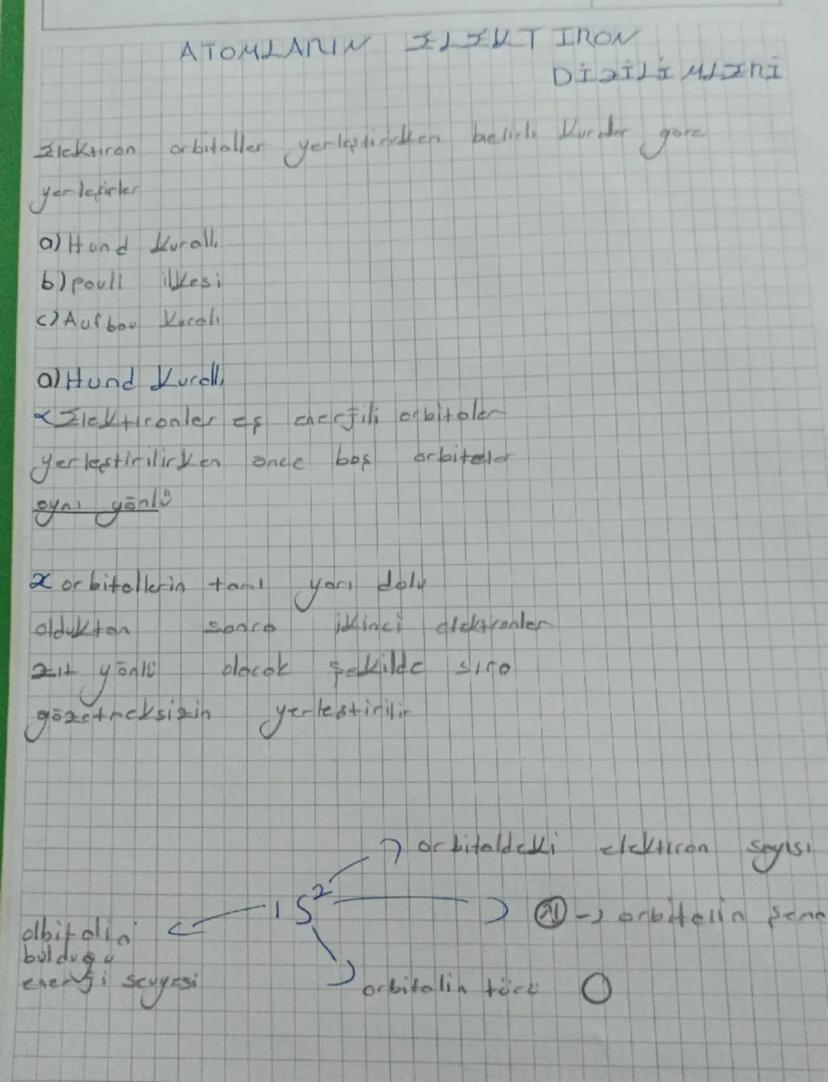 ATOMLARIN ELEKTIRON
DİZİLİMLERİ
Elektiron orbitaller yerleştirirken belirli Kurallar göre
yerleşirler
a) Hund Kurallı
b) pouli ilkesi
c) Aufbau Kuralı
a) Hund Kurallı
Elektironlar eş enerjili orbitaler
yerleştirilirken önce boş orbitaler
aynı yönlü
x orbitallerin tamı yarı dolu
oldukton sonra ikinci elektronlar
zıt yönlü olacak şekilde sıra
gözetmeksizin yerlestirilir
orbitaldeki elektiron sayısı
1S²
↑↓ → orbitalin şema
olbitalin
bulduğu
enerji seviyesi
orbitalin türü